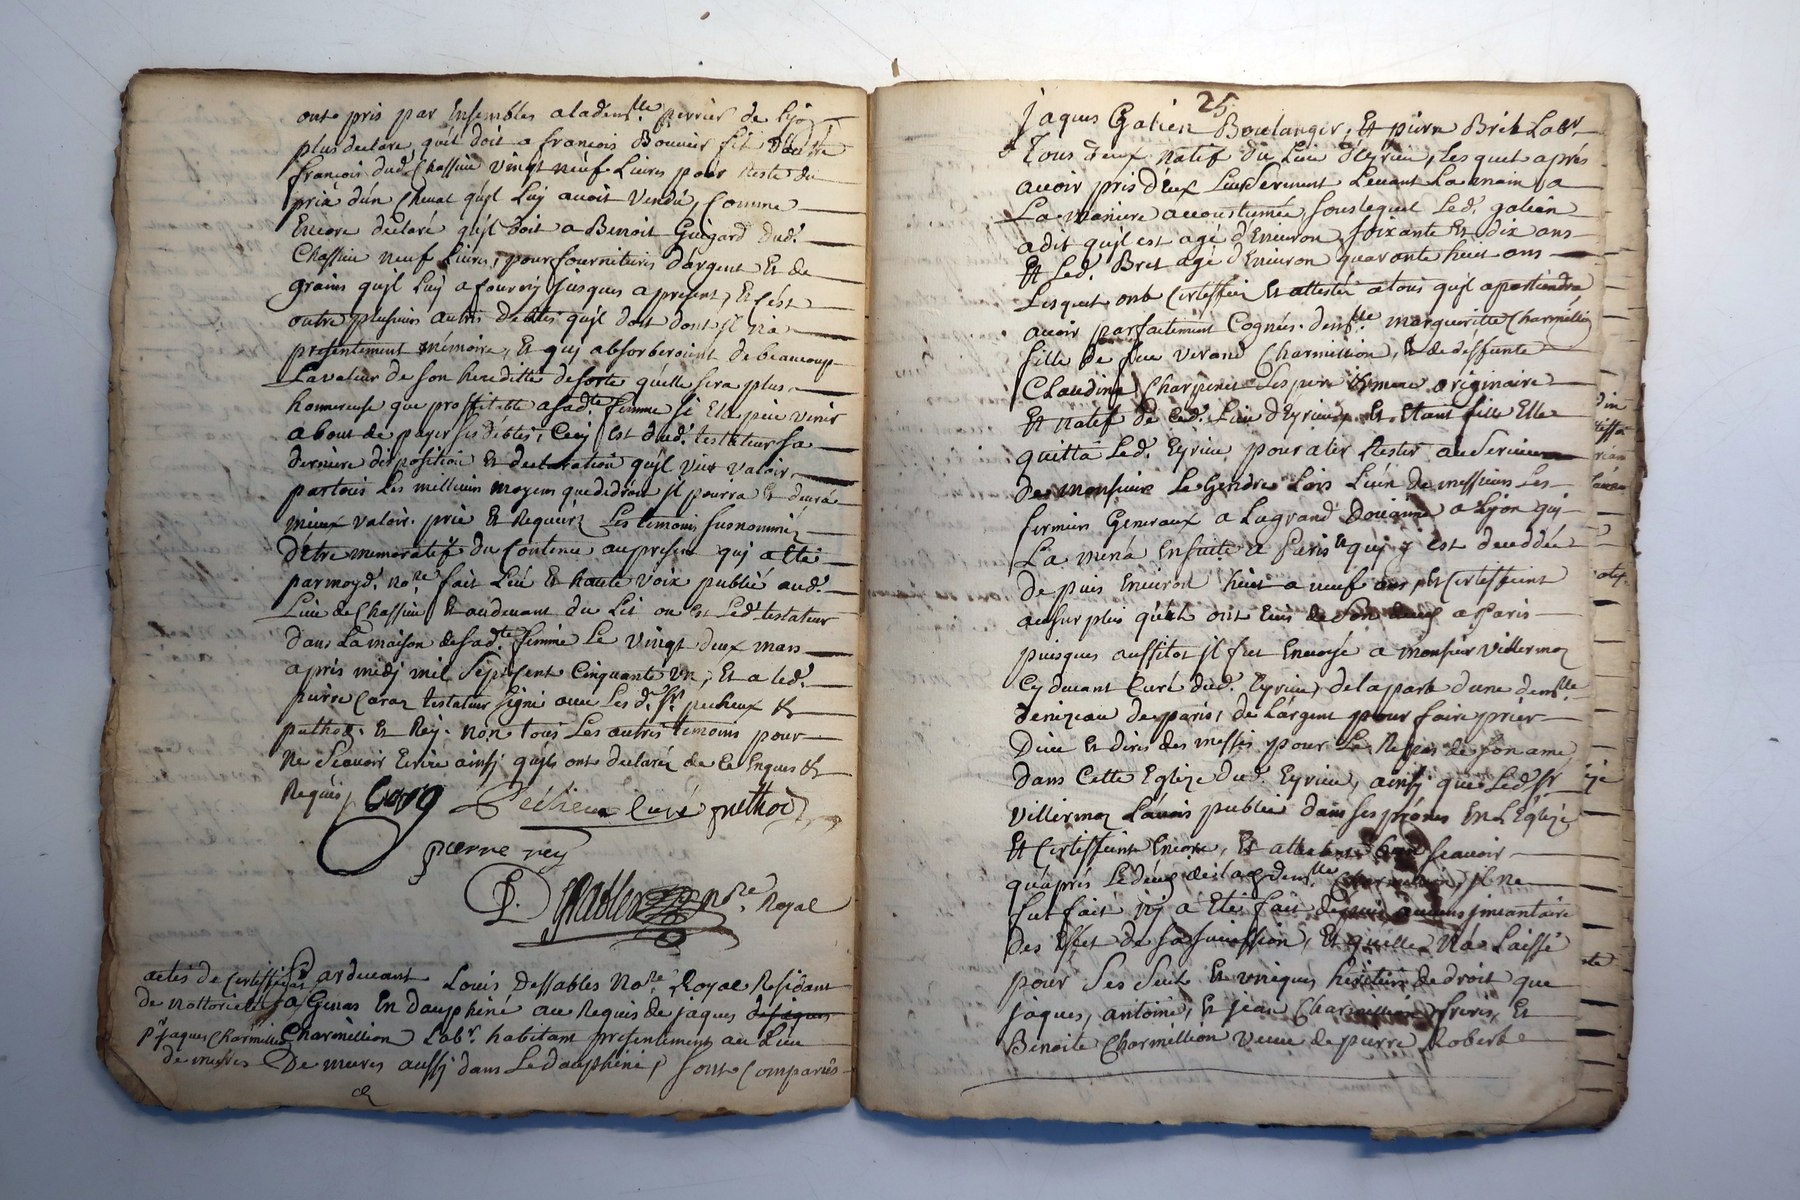 ont pris par Ensembles a la dem.lle Perrier de Lyon
plus declare quil doit a francois Bouvier fils dautre
francois dud. Chassieu vingt neuf Livres pour Reste du
prix d'un Cheval quil luy avoit Vendu, Comme
Encore declaré quil doit a Benoit Guigard dud.
Chassieu neuf Livres, pour fournitures d'argent Et de
grains quil luy a fourny jusques a present, Et c'est
outre plusieurs autres debtes quil doit dont il n'a
presentement memoire, Et quj absorberoient de beaucoup
La valeur de son hereditte de sorte qu'elle sera plus
honnereuse que proffitable a sad.te femme si Ele peu venir
a bout de payer ses debtes, Cecy Est dud. testateur sa
derniere disposition Et declaration quil veut valoir
par tous Les meillieurs moyens que de droit il pourra Et devra
mieux valoir. prié Et Requerz Les temoins susnommez
D'etre memoratif du Contenu au present quj a Eté
par moyd. no.re fait Leu Et haute voix publié aud.
Lieu de Chassieu Et au devant du Lit ou est Led. testateur
Dans La maison de sad.te femme Le vingt deux mars
apres midy mil Sept Cent Cinquante Un, Et a led.
pierre Caraz testateur signé avec Les d. Sr. pecheux &
puthod. Et Rey. non tous Les autres temoins pour
Ne Scavoir Ecrire ainsj quils ont declaréz de Ce Enquis &
Requis
pecheux curé puthod
pierre rey
Dessables no.re Royal
actes de Certifficat Pardevant Louis Dessables No.re Royal Residant
de nottorieté a Genas En dauphiné au Requis de jaques
pr jaques Charmillion Charmellion Lab.r habitant presentement au Lieu
de meres De mures aussj dans Le dauphiné, sont Comparus
25
jaques Galien Boulanger, Et pierre Bret Lab.r
Tous deux natif du Lieu d'Eyrieu, Les quel après
avoir pris d'Eux Leur Serment Levant La main a
La maniere accoustumée, sous lequel Led. galien
a dit quil est agé d'Environ soixante Et dix ans
Et Led. Bret agé d'Environ quarante huit ans
Lesquel ont Certiffié Et attesté a tous quil apartiendra
avoir parfaitement Cognus dem.lle marguerite Charmellion
fille de feu Verand Charmillion, & de deffunte
Claudine Charpenet Ses pere & mere originaire
Et natif de Ced. Lieu d'Eyrieu, Et Etant fille Elle
quitta Led. Eyrieu pour aler Rester au Service
de monsieur Le Gendre Lois L'un de messieurs Les
fermiers Generaux a La grand Douanne a Lyon quj
La mena Ensuite a Paris quj y est deceddée
De puis Environ huit a neuf ans, Et Certiffient
au surplus quils ont Eus de son deces a Paris
puisques aussitot il fut Envoyé a monsieur Villermoz
Cy devant Curé dud. Eyrieu, de la part d'une dem.lle
denizeau de paris, de L'argent pour faire prier
Dieu Et dires des messes pour Le Repos de son ame
Dans Cette Eglize dud. Eyrieu, ainsj que Led. Sr
Villermoz L'avois publié dans ses prônes En L'Eglize
Et Certiffient Encore, Et attestent scavoir
quaprès Le deces de lad. dem.lle Charmillion, il ne
fut fait nj a Eté fait depuis aucuns jnvantaire
Des Effet de sa succession, Et quelle N'a Laissé
pour Ses Seul Et uniques heritiers de droit que
jaques, antoine, Et jean Charmillion freres, Et
Benoite Charmillion veuve de pierre Robert